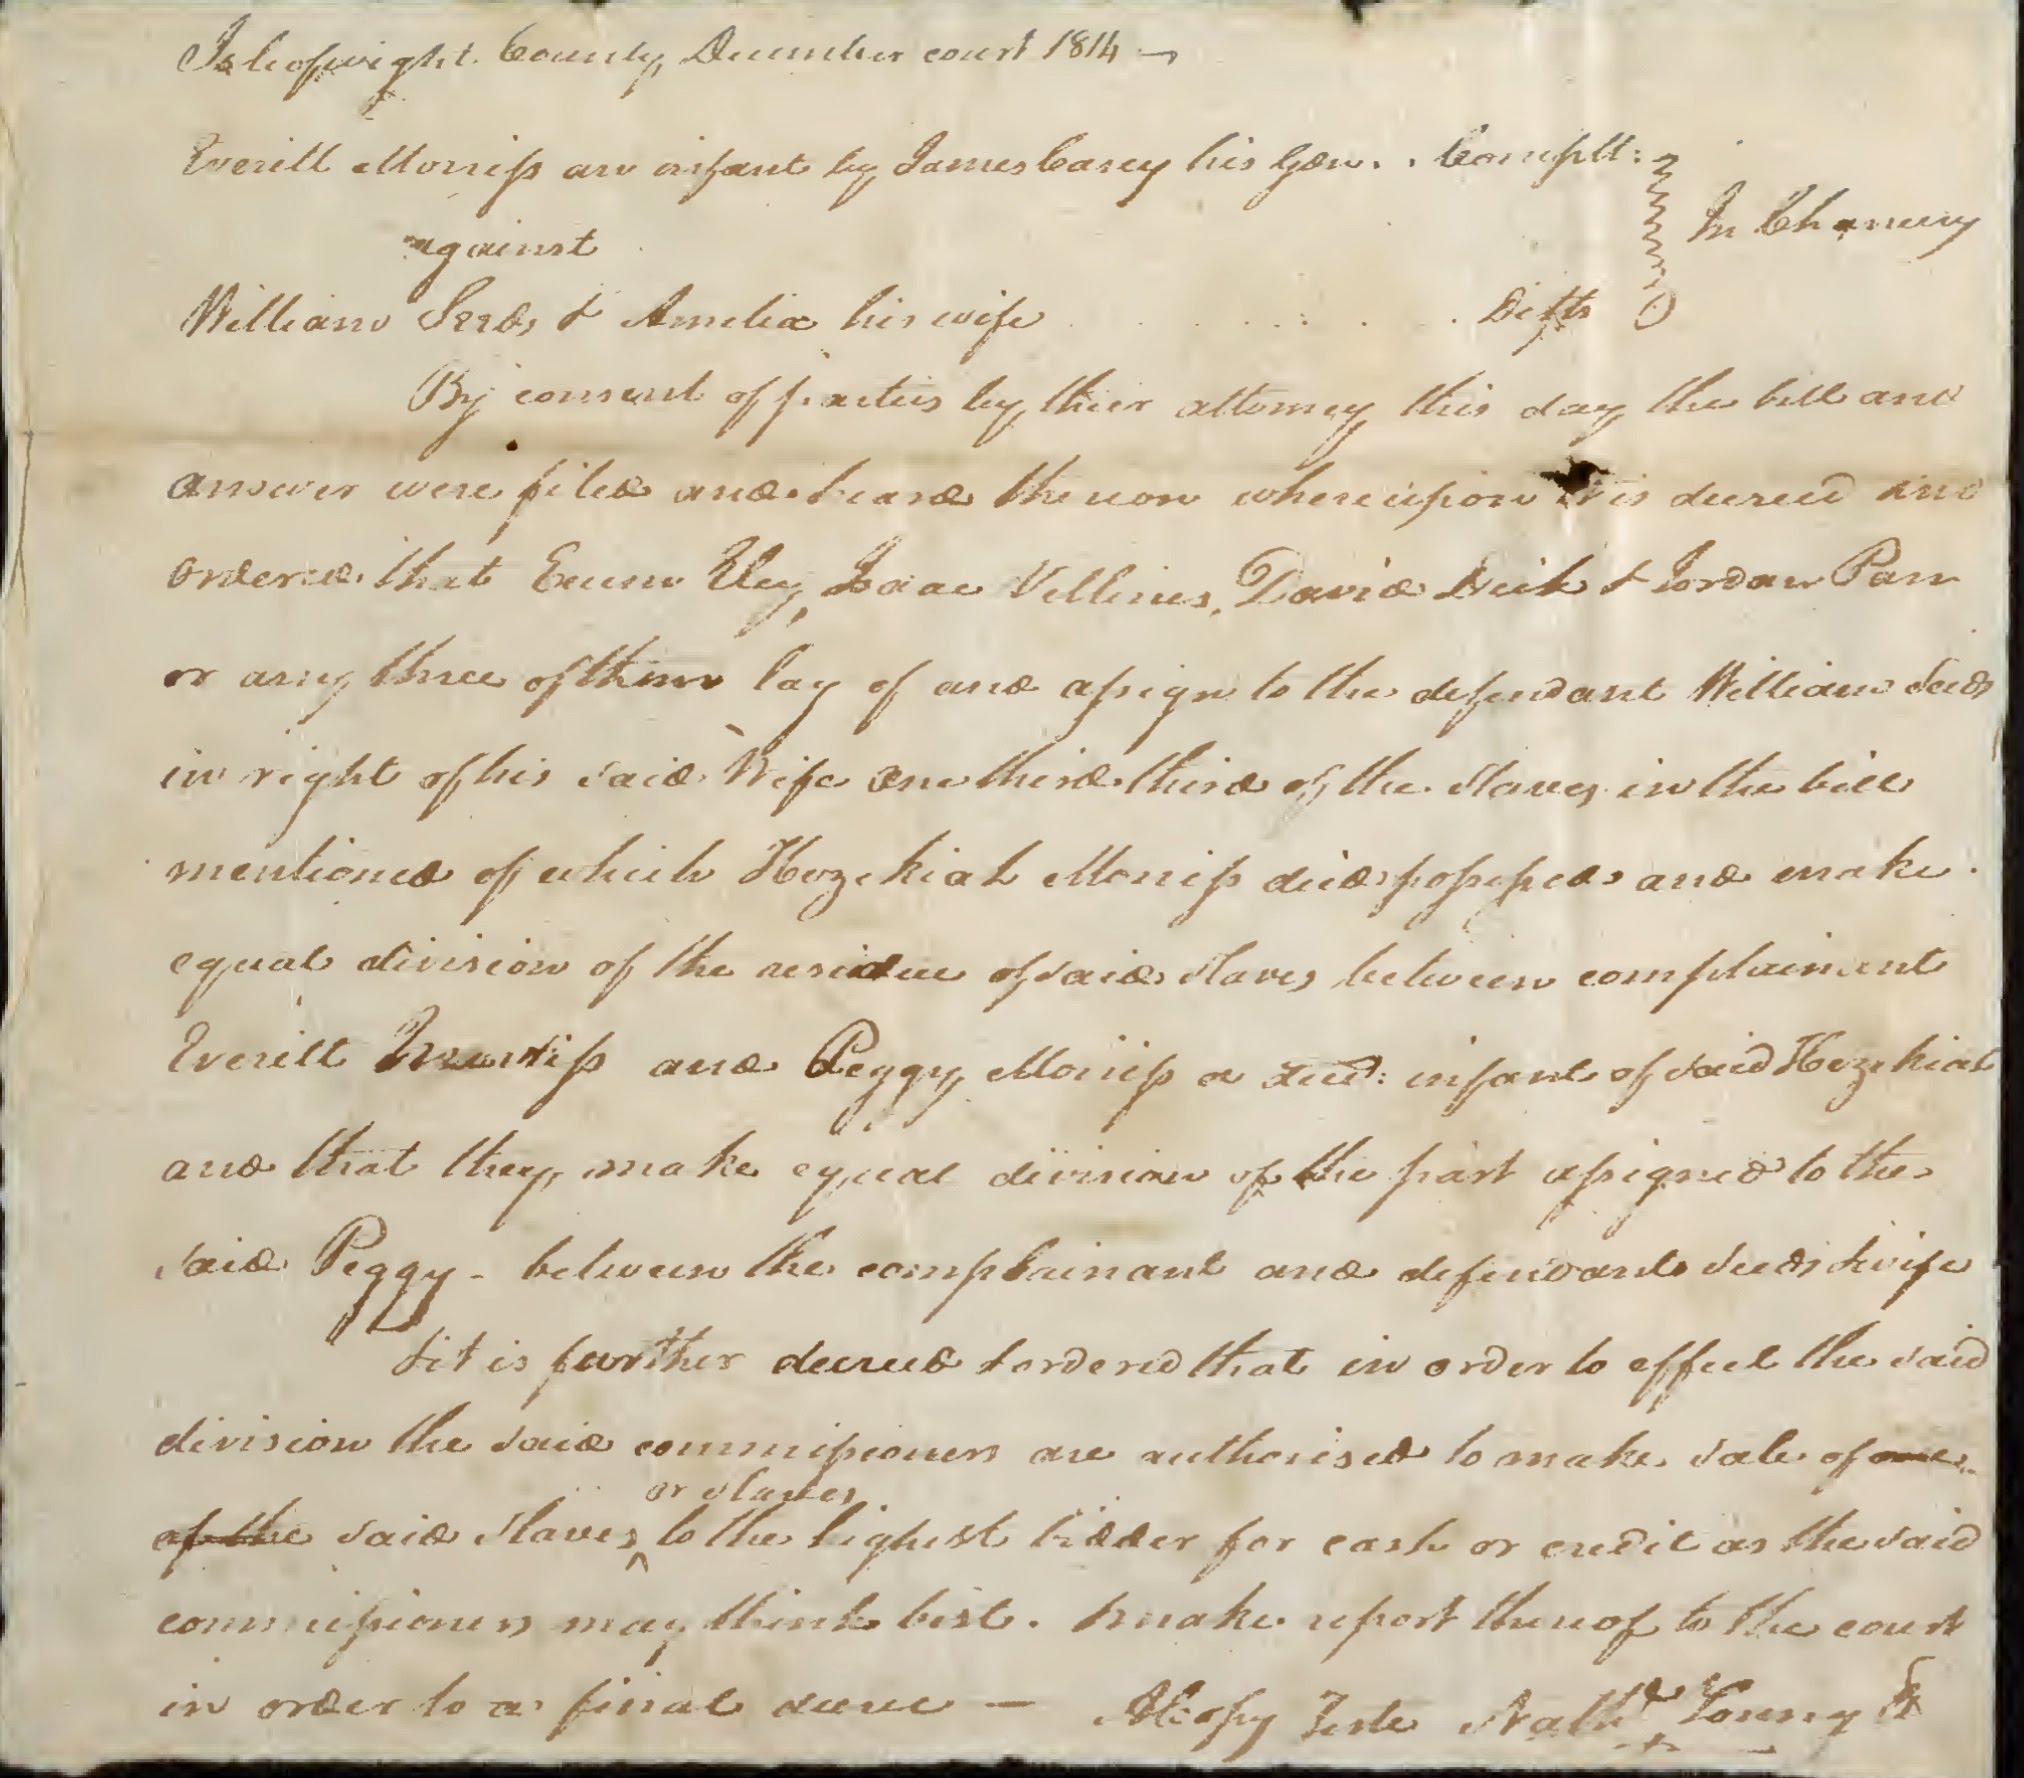 Isle of wight County December court 1814 —
Everitt Morriss an infant by James Casey his Gdn. . Complt:
against In Chancery
William Seeds & Amelia his wife . . . . . . Defts
By consent of parties by their attorney this day the bill and
answer were filed and heard thereon whereupon it is decreed and
ordered that Exum Eley, Isaac Vellines, David Dick & Jordan Parr
or any three of them lay of and assign to the defendant William Seeds
in right of his said Wife one third third of the slaves in the bill
mentioned of which Hezekiah Morriss died possessed and make
equal division of the residue of said slaves between complainant
Everitt Morriss and Peggy Morriss a decd: infant of said Hezekiah
and that they make equal division of the part assigned to the
said Peggy - between the complainant and defendants Seeds & wife
& it is further decreed & ordered that in order to effect the said
division the said commissioners are authorised to make sale of one
or slaves
of the said slaves ^ to the highest bidder for cash or credit as the said
commissioners may think best. & make report thereof to the court
in order to a final decree — A Copy Teste Nathl Young